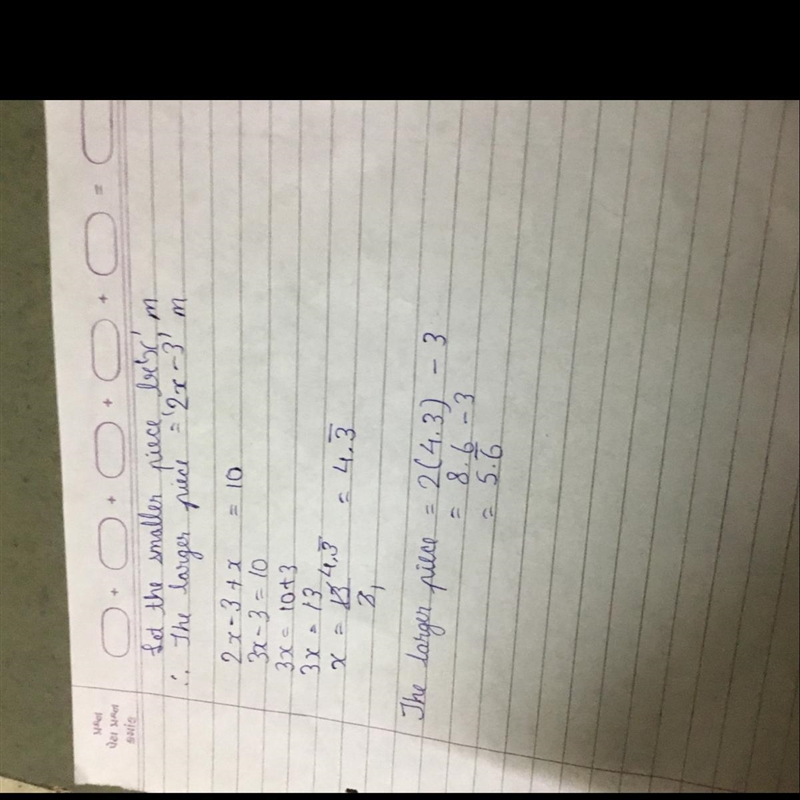 Let the smaller piece be 'x' m
∴ The larger piece = '2x-3' m
2x-3+x = 10
3x-3=10
3x = 10+3
3x = 13
x = 13/3 4.3̅ = 4.3̅
The larger piece = 2(4.3) - 3
= 8.6-3
= 5.6̅
+ + + + =